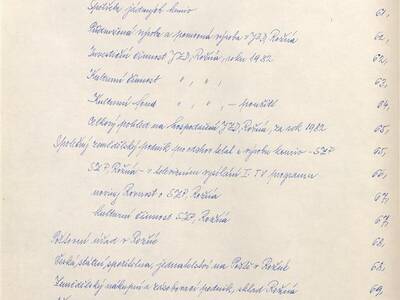 Spotřeba jadrných krmiv 61,
Přidružená výroba a pomocná výroba v JZD Rožná 62,
Investiční činnost JZD, Rožná, roku 1982 62,
Kulturní činnost " , " , " , 63,
Kulturní fond " , " , " , – použití 64,
Celkový pohled na hospodaření JZD, Rožná, za rok 1982 65,
Společný zemědělský podnik pro odchov telat a výrobu krmiv – SZP 65,
SZP, Rožná – v televizním vysílání I. TV programu
noviny Rovnost o SZP, Rožná 67,
kulturní činnost SZP, Rožná 67,
Poštovní úřad v Rožné 68,
Česká, státní, spořitelna, jednatelství na Poště v Rožné 68,
Zemědělský nákupní a zásobovací podnik, sklad Rožná 69,